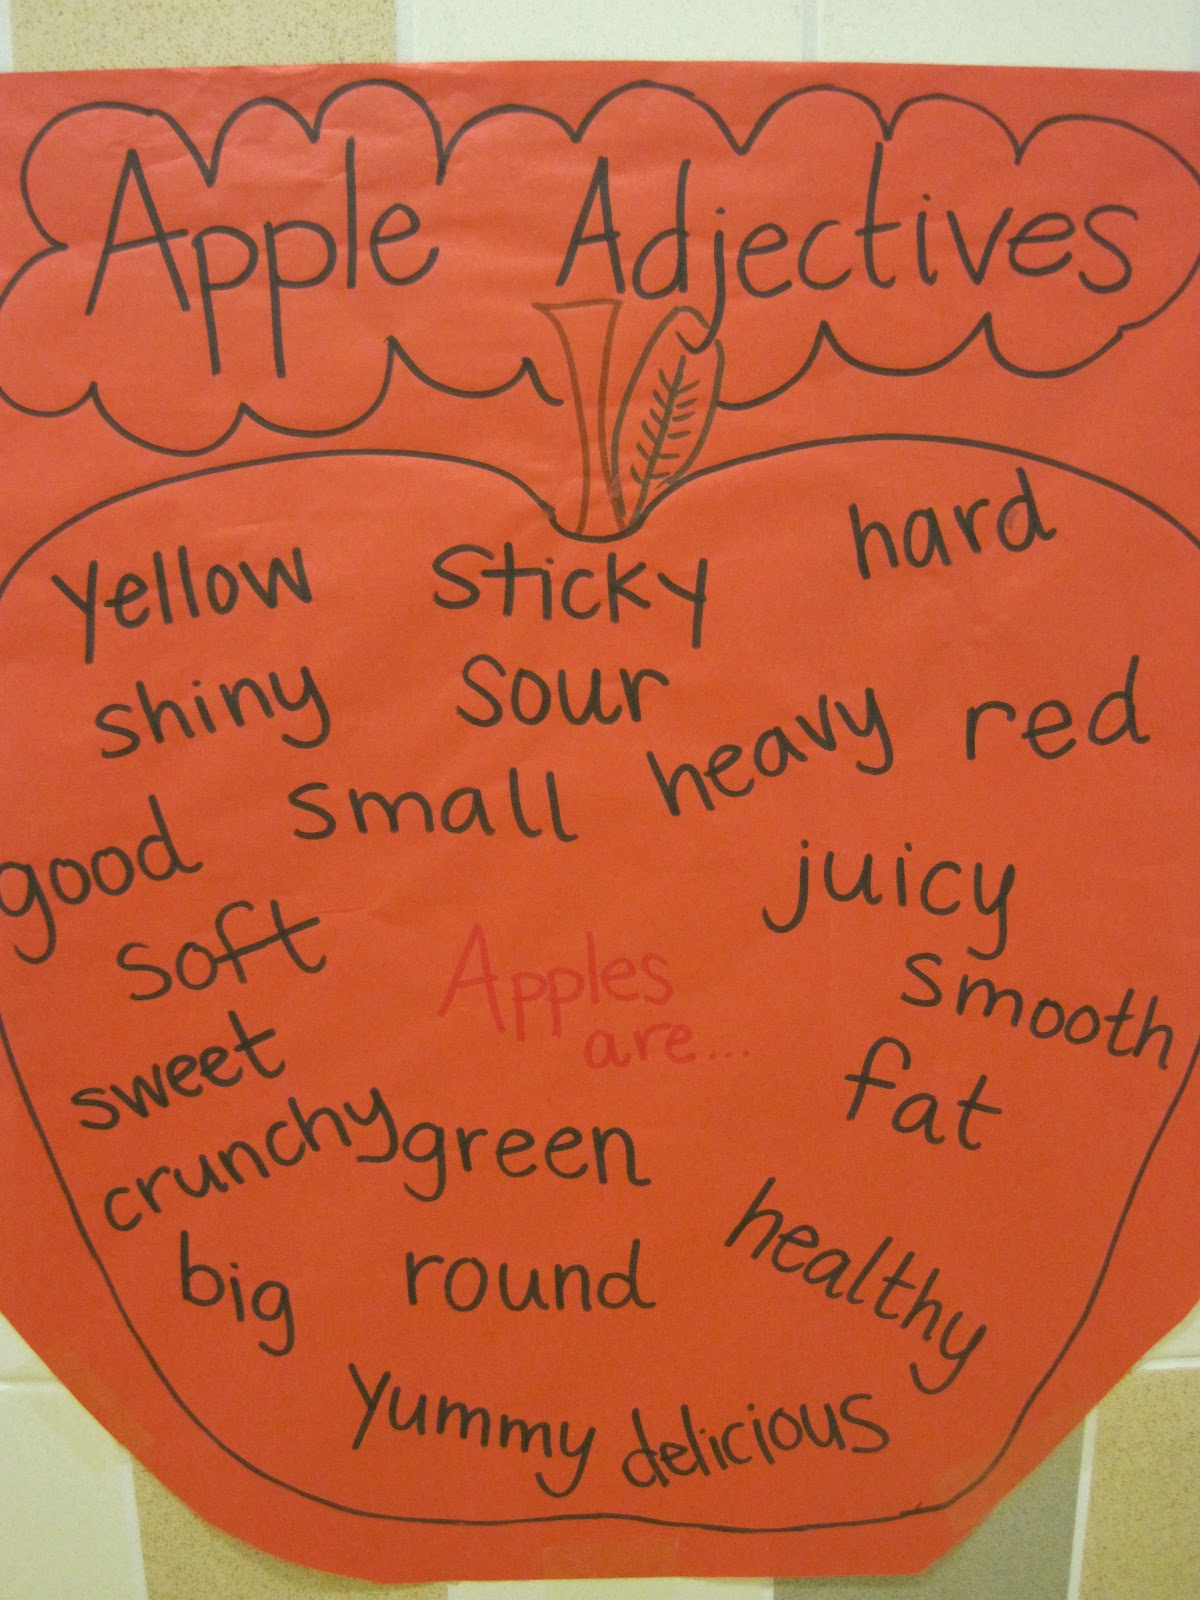 Apple Adjectives
yellow sticky hard
shiny sour heavy red
good small juicy
soft Apples are... smooth
sweet fat
crunchy green
big round healthy
yummy delicious